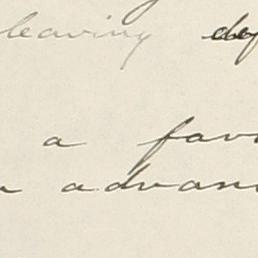 leaving
a fav
advan